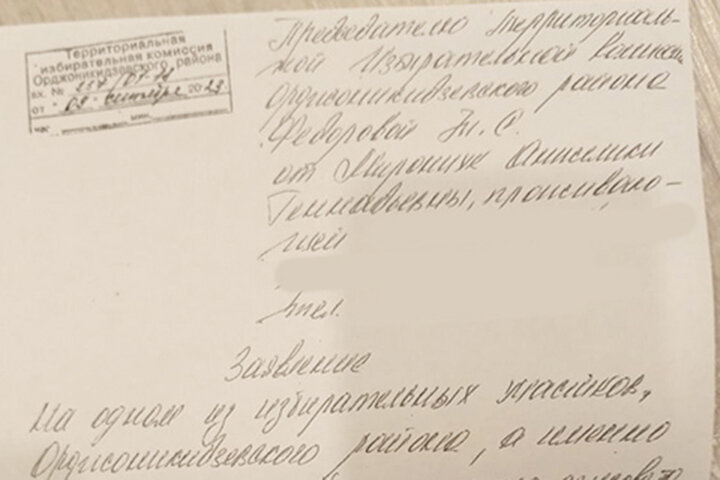 Территориальная
избирательная комиссия
Орджоникидзевского района
вх. № 237/01-18
от 09 сентября 2023.
час. мин.
Председателю Территориаль-
ной Избирательной Комиссии
Орджоникидзевского района
Федоровой Т. С.
от Мирончик Анжелики
Геннадьевны, проживаю-
щей
тел.
Заявление
На одном из избирательных участков,
Орджоникидзевского района, а именно